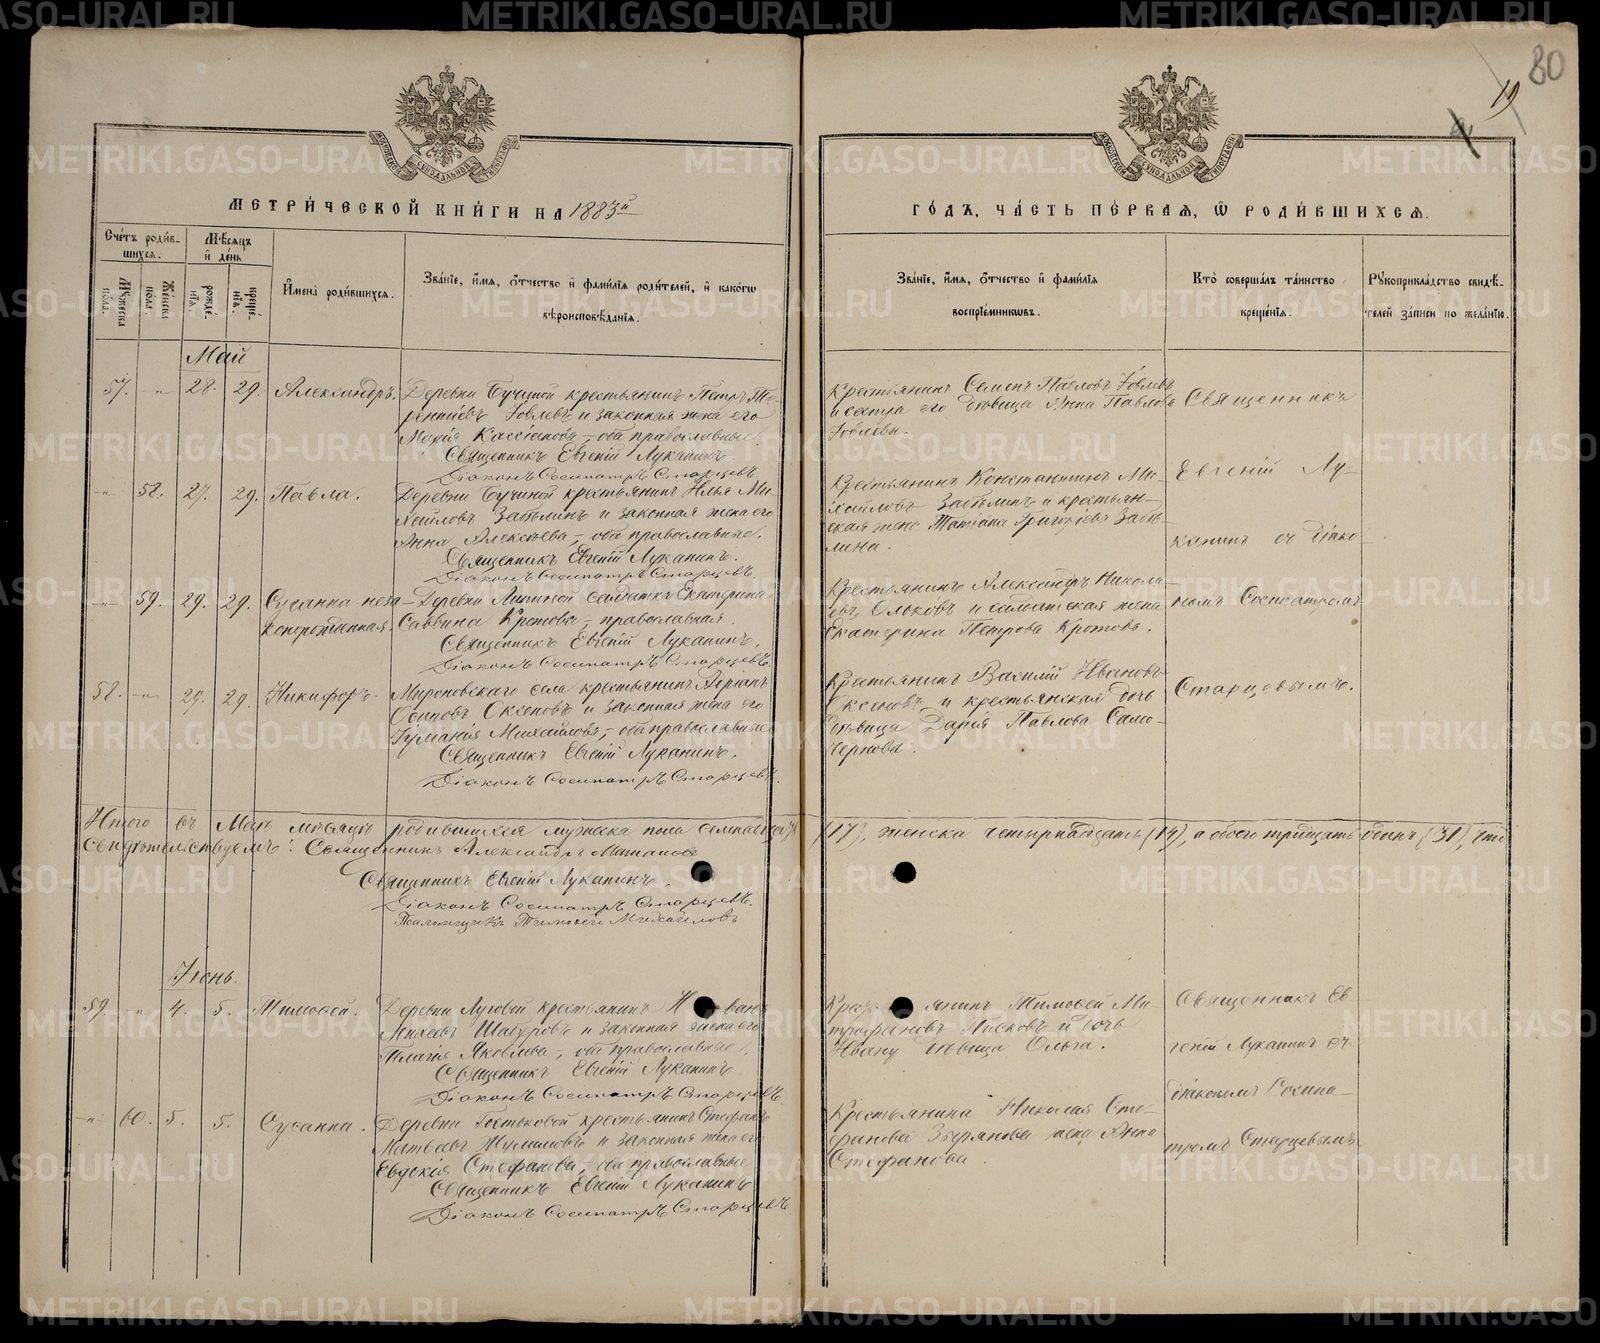 80
19
МЕТРИ́ЧЕСКОЙ КНИ́ГИ НА 1883й
ГО́ДЪ, ЧА́СТЬ ПЕ́РВАЯ, Ѡ РОДИ́ВШИХСЯ.
Сче́тъ роди́в-
шихся.
Мѣсяцъ
и҆ де́нь
Му́жеска по́ла.
Же́нска по́ла.
рожде́нїя.
креще́нїя.
И҆мена̀ роди́вшихся.
Зва́нїе, и҆́мя, ѻ҆́тчество и҆ фами́лїя роди́телей, и҆ како́гѡ
вѣроисповѣ́данїя.
Зва́нїе, и҆́мя, ѻ҆́тчество и҆ фами́лїя
воспрїе́мникѡвъ.
Кто̀ соверша́лъ та́инство
креще́нїя.
Рꙋкоприкла́дство свидѣ́-
телей за́писи по жела́нїю.
Май
57. " 28. 29. Александръ.
Деревни Бучиной крестьянинъ Петръ Те-
рентіевъ Іовлевъ и законная жена его
Марія Кассіанова, оба православные.
Священникъ Евгеній Луканинъ.
Діаконъ Сосипатръ Старцевъ.
Крестьянинъ Семенъ Павловъ Іовлевъ
и сестра его дѣвица Анна Павлова
Іовлева.
Священникъ
Евгеній Лу-
канинъ съ діако-
номъ Сосипатромъ
Старцевымъ.
" 58. 27. 29. Павла.
Деревни Бучиной крестьянинъ Илья Ми-
хайловъ Забѣлинъ и законная жена его
Анна Алексѣева, оба православные.
Священникъ Евгеній Луканинъ.
Діаконъ Сосипатръ Старцевъ.
Крестьянинъ Константинъ Ми-
хайловъ Забѣлинъ и крестьян-
ская жена Татіана Григоріева Забѣ-
лина.
" 59. 29. 29. Сусанна неза-
коннорожденная.
Деревни Липиной солдатка Екатерина
Саввина Кротова, православная.
Священникъ Евгеній Луканинъ.
Діаконъ Сосипатръ Старцевъ.
Крестьянинъ Александръ Никола-
евъ и солдатская жена
Екатерина Петрова Кротова.
58. " 29. 29. Никифоръ.
Мироновскаго села крестьянинъ Адріанъ
Осиповъ Оксеновъ и законная жена его
Михайлова, оба православные
Священникъ Евгеній Луканинъ.
Діаконъ Сосипатръ Старцевъ.
Крестьянинъ Василій Ивановъ
Оксеновъ и крестьянская дочь
дѣвица Дарія Павлова Само-
чернова.
Итого въ Маѣ мѣсяцѣ родившихся мужеска пола семнадцать (17), женска четырнадцать (14), а обоего тридцать одинъ (31), что
свидѣтельствуемъ: Священникъ Александръ
Священникъ Евгеній Луканинъ.
Діаконъ Сосипатръ Старцевъ.
Псаломщикъ Тимоѳей Михайловъ
Іюнь.
59. " 4. 5. Тимоѳей.
Деревни Луговой крестьянинъ Иванъ
Шагуровъ и законная жена его
Пелагія Яковлева, оба православные.
Священникъ Евгеній Луканинъ.
Діаконъ Сосипатръ Старцевъ.
Крестьянинъ Тимоѳей Ми-
трофановъ Лисковъ и дочь
Ивану дѣвица Ольга.
Священникъ Ев-
геній Луканинъ съ
діакономъ Сосипа-
тромъ Старцевымъ.
" 60. 5. 5. Сусанна.
Деревни Гостьковой крестьянинъ Стефанъ
Матвеевъ и законная жена его
Евдокія Стефанова, оба православные
Священникъ Евгеній Луканинъ
Діаконъ Сосипатръ Старцевъ
Крестьянина Николая Сте-
фанова Зырянова жена Анна
Стефанова.
METRIKI.GASO-URAL.RU